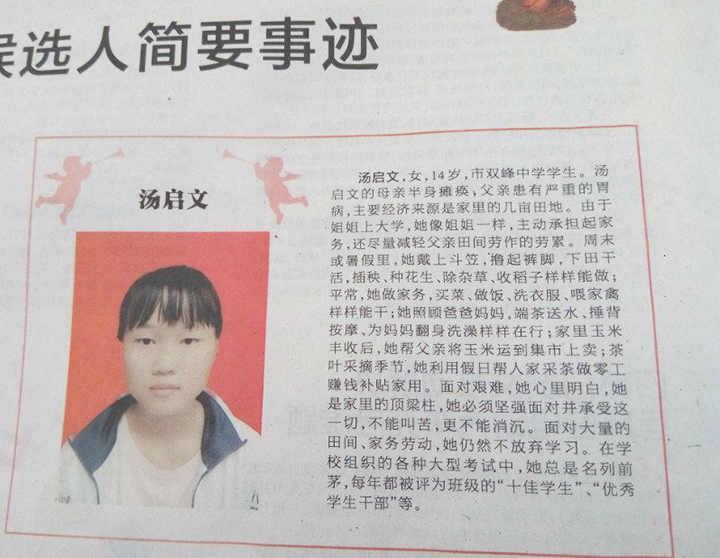 候选人简要事迹
汤启文
汤启文,女,14岁,市双峰中学学生。汤
启文的母亲半身瘫痪,父亲患有严重的胃
病,主要经济来源是家里的几亩田地。由于
姐姐上大学,她像姐姐一样,主动承担起家
务,还尽量减轻父亲田间劳作的劳累。周末
或暑假里,她戴上斗笠,撸起裤脚,下田干
活,插秧、种花生、除杂草、收稻子样样能做;
平常,她做家务,买菜、做饭、洗衣服、喂家禽
样样能干;她照顾爸爸妈妈,端茶送水、捶背
按摩、为妈妈翻身洗澡样样在行;家里玉米
丰收后,她帮父亲将玉米运到集市上卖;茶
叶采摘季节,她利用假日帮人家采茶做零工
赚钱补贴家用。面对艰难,她心里明白,她
是家里的顶梁柱,她必须坚强面对并承受这
一切,不能叫苦,更不能消沉。面对大量的
田间、家务劳动,她仍然不放弃学习。在学
校组织的各种大型考试中,她总是名列前
茅,每年都被评为班级的“十佳学生”、“优秀
学生干部”等。